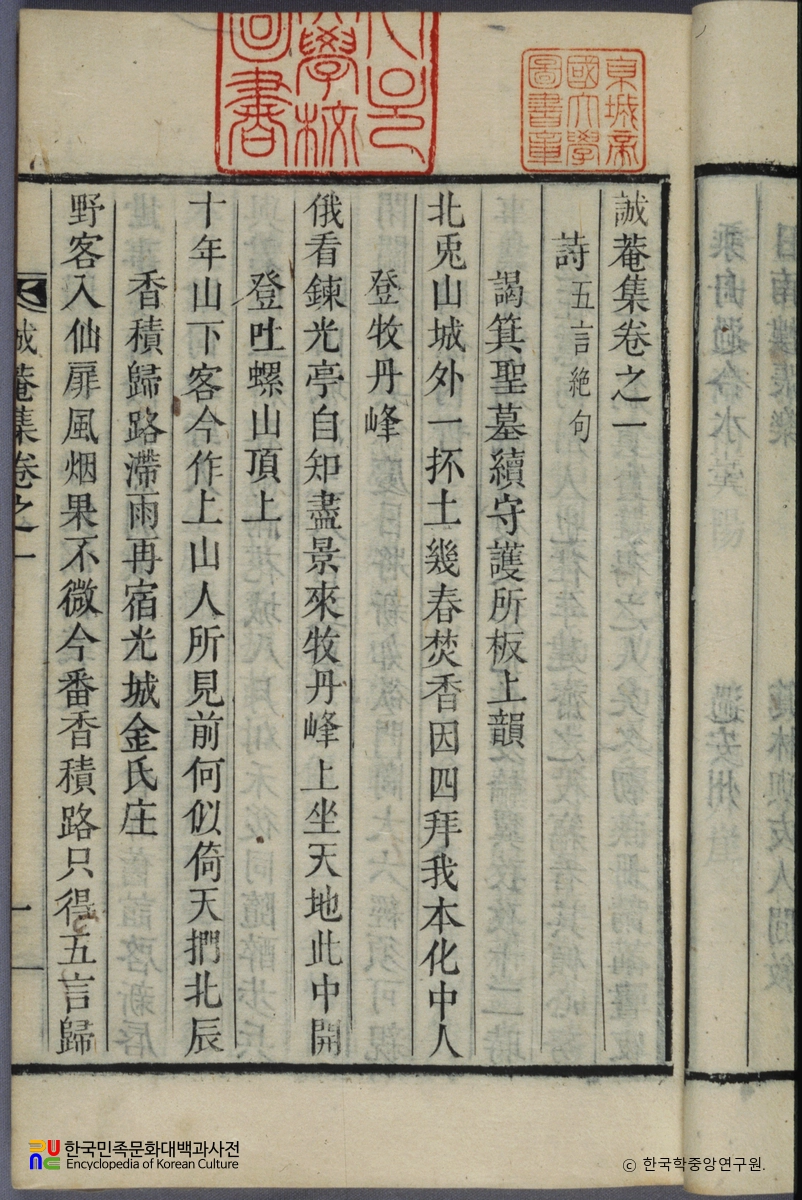 誠菴集卷之一
詩 五言絶句
謁箕聖墓續守護所板上韻
北兎山城外一抔土幾春焚香因四拜我本化中人
登牧丹峰
俄看鍊光亭自知盡景來牧丹峰上坐天地此中開
登吐螺山頂上
十年山下客今作上山人所見前何似倚天捫北辰
香積歸路滯雨再宿光城金氏庄
野客入仙扉風烟果不微今番香積路只得五言歸
誠菴集卷之一
一
東城帝
國大學
圖書章
學校
圖書
한국민족문화대백과사전
Encyclopedia of Korean Culture
ⓒ 한국학중앙연구원.